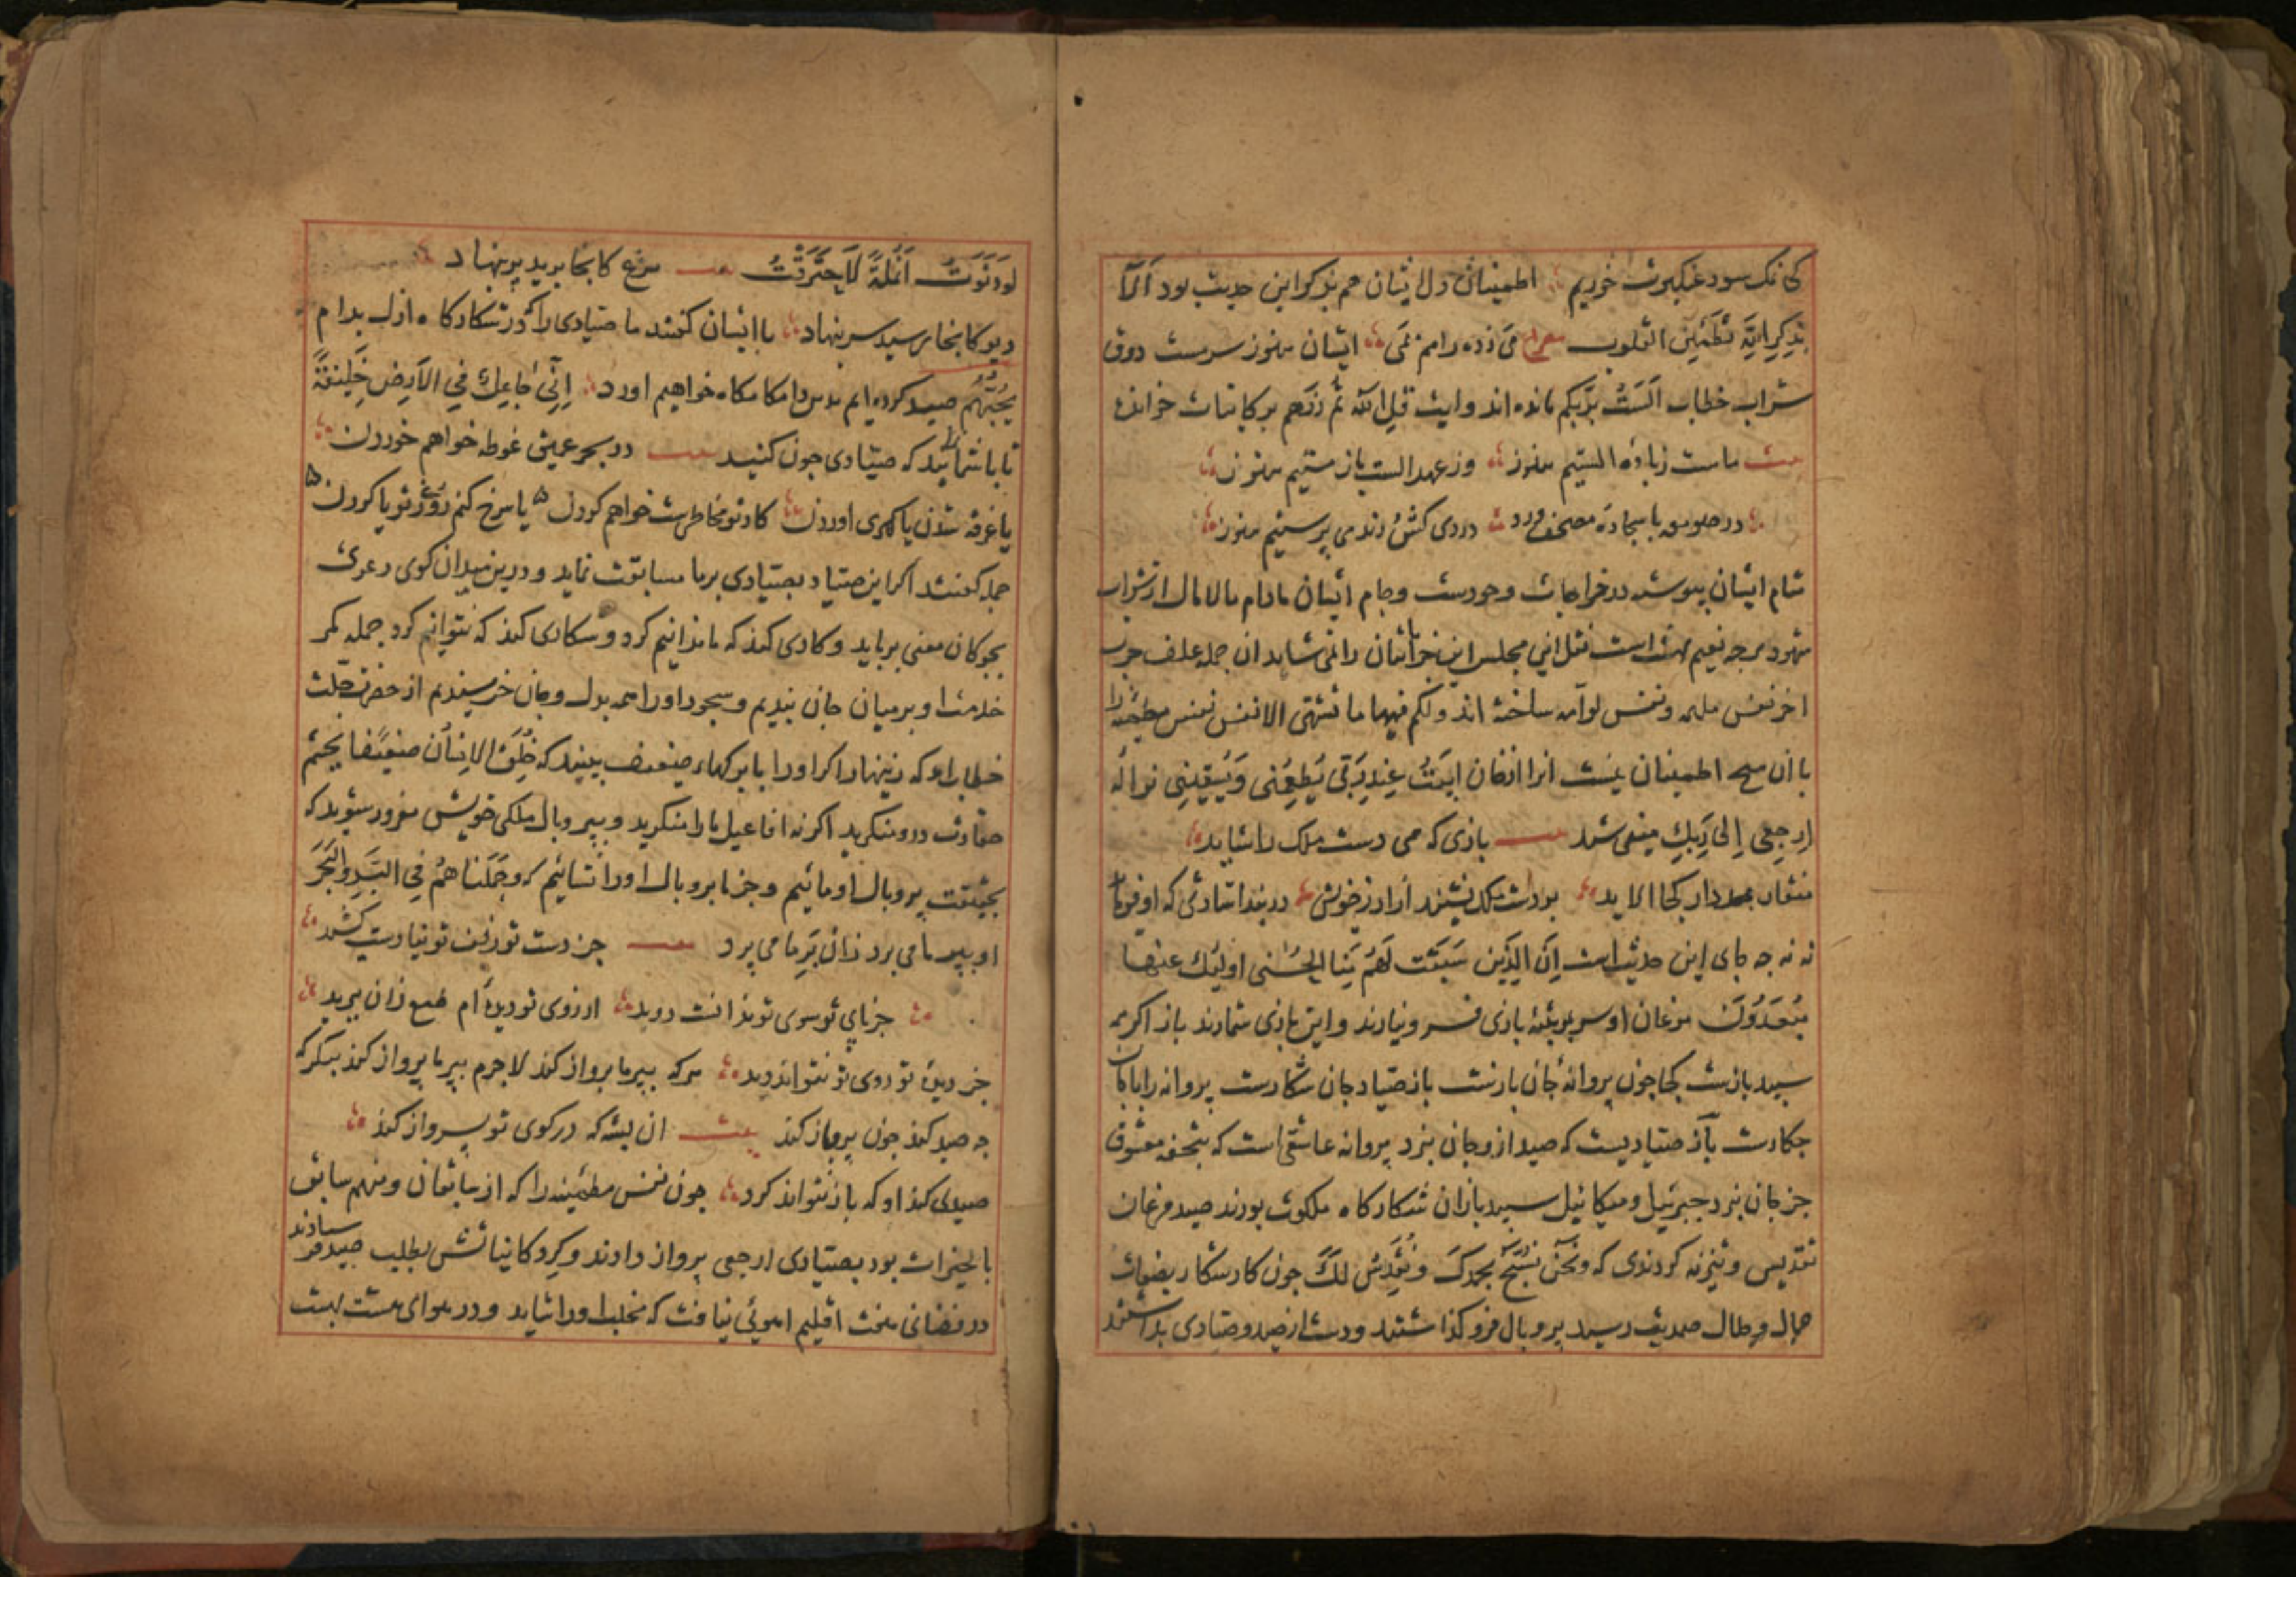 کی نمک سود عنکبوت خوریم اطمینان دل ایشان هم بذکر این حدیث بود اَلاَ
بِذِکرِ اللهِ تَطمَئِنُ القلوب مصراع می زده را هم بمی ایشان هنوز سرمست ذوق
شراب خطاب اَلَستُ بِرَبِّکم مانده اند وایت قلِ الله ثُم ذَرهم بر کاینات خوانده
بیت ما مست ز باده الستیم هنوز وز عهد الست باز مستیم هنوز
در صومعه با سجاده و مصحف و ورد دردی کش و رند و می پرستیم هنوز
مشام ایشان پیوسته در خرابات وجودست وجام ایشان مادام مالامال از شراب
شهود هرجه نعیم بهشت است نقل این مجلس این خراباتیان را نمی شاید ان جمله علف جرب
اخر نفس ملهمه ونفس لوامه ساخته اند ولکم فیها ما تشتهی الانفس نفس مطمئنه را
با ان هیچ اطمینان نیست انرا از خوان اَبیتُ عِندَ رَبّی یُطعِمُنی وَیَسقینِی نواله
اِرجِعِی اِلیٰ رَبِّکِ میفرستد بیت بازی که همی دست ملک را شاید
منقار بمردار کجا الاید بر دست ملک نشیند ازاد ز خویش در بند اشارتی که او فرماید
نه نه جه جای این حدیث است اِنَّ الَّذینَ سَبَقَت لَهُم مِنَّا الحُسنی اولئک عنها
مُبعَدُونَ مرغان او سر بهر بیضه بازی فرو نیارند و این بازی شمارند باز اکرجه
سپید بازست کجا جون پروانه جان بازست باز صیاد جان شکارست پروانه را با جان
جکارست باز صیادیست که صید ازو جان نبرد پروانه عاشقی است که بتحفه معشوق
جز جان نبرد جبرئیل و میکائیل سپید بازان شکارکاه ملکوت بودند صید مرغان
تقدیس و تنزیه کردندی که ونَحنُ نُسَبِّحُ بِحَمدِکَ ونُقَدِّسُ لَکَ جون کار شکار بصفات
جمال و جلال صمدیت رسید پر و بال فرو کذاشتند و دست از صید و صیادی بداشتند
لَو دَنَوتُ اَنمُلَةً لاَحتَرَقتُ بیت مرغ کانجا پرید پر بنهاد
دیو کانجا رسید سر بنهاد با ایشان کفتند ما صیادی را که در شکارکاه ازل بدام
یُحِبُّهُم صید کرده ایم بدین دامکاه خواهیم اورد اِنِّی جاعِلٌ فِی الاَرضِ خَلیفَةً
تا با شما نماید که صیادی جون کنید بیت در بحر عمیق غوطه خواهم خوردن
یا غرقه شدن یا کهری اوردن کار تو مخاطرست خواهم کردن یا سرخ کنم روی ز تو یا کردن
جمله کفتند اکر این صیاد بصیادی بر ما مسابقت نماید و درین میدان کوی دعوی
بجوکان معنی برباید و کاری کند که ما ندانیم کرد و شکاری کند که نتوانیم کرد جمله کمر
خدمت او بر میان جان بندیم و سجود او را همه بدل و جان خرسندیم از حضرت جلت
خطاب امد که زینهار اکر او را بابرکهاء ضعیف بینید که خُلِقَ الاِنسانُ ضَعیفًا بچشم
حقارت درو منکرید اکر نه افاعیل ما را منکرید و بپر و بال ملکی خویش مغرور مشوید که
بحقیقت پر و بال او مائیم و جز ما پر و بال او را نشائیم که وَحَمَلناهُم فِی البَرِّ وَالبَحرِ
او بپر ما می پرد زان بَرِ ما می پرد بیت جز دست تو زلف تو نیارست کشید
جز پای تو سوی تو نداندست دوید از روی تو دیده ام طمع زان ببرید
جز دیده تو روی تو نتواند دید هرکه بپر ما پرواز کند لاجرم بپر ما پرواز کند بنکر که
چه صید کند جون پرواز کند بیت ان پشه که در کوی تو پرواز کند
صیدی کند او که باز نتواند کرد جون نفس مطمئنه را که از سابقان ومنهم سابق
بالخیرات بود بصیادی ارجعی پرواز دادند و کرد کاینانش بطلب صید فرستادند
در فضائی هفت اقلیم اهوئی نیافت که مخلب او را شاید و در هوای هشت بهشت